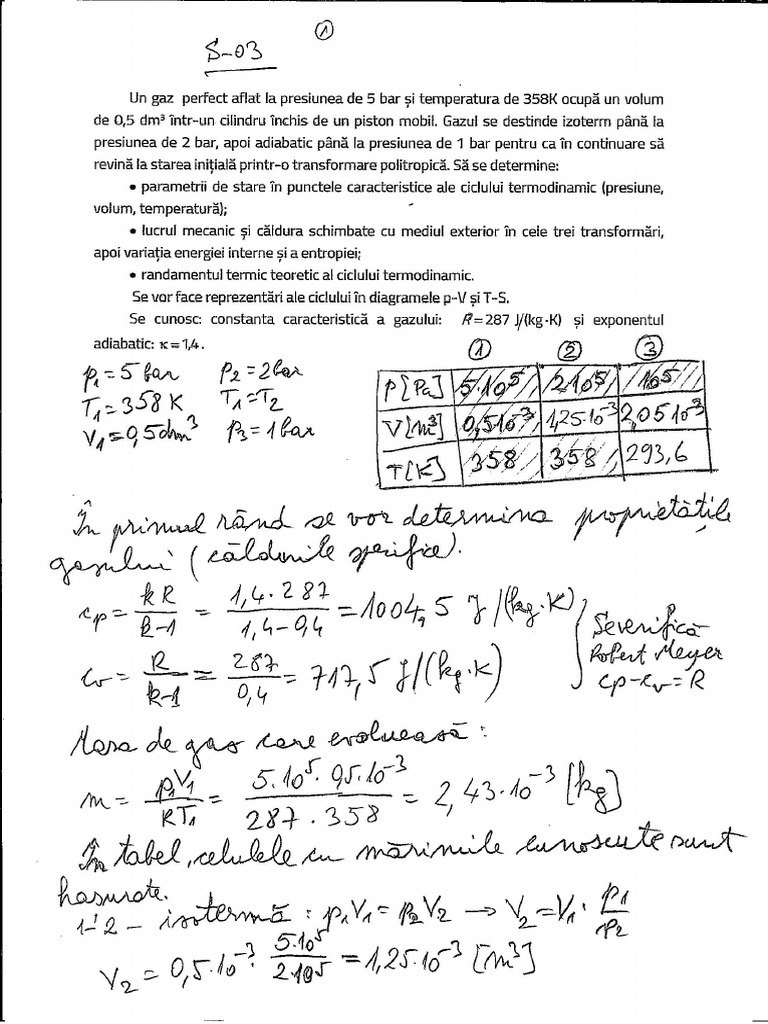 ①
S-03
Un gaz perfect aflat la presiunea de 5 bar și temperatura de 358K ocupă un volum
de 0,5 dm³ într-un cilindru închis de un piston mobil. Gazul se destinde izoterm până la
presiunea de 2 bar, apoi adiabatic până la presiunea de 1 bar pentru ca în continuare să
revină la starea inițială printr-o transformare politropică. Să se determine:
• parametrii de stare în punctele caracteristice ale ciclului termodinamic (presiune,
volum, temperatură);
• lucrul mecanic și căldura schimbate cu mediul exterior în cele trei transformări,
apoi variația energiei interne și a entropiei;
• randamentul termic teoretic al ciclului termodinamic.
Se vor face reprezentări ale ciclului în diagramele p-V și T-S.
Se cunosc: constanta caracteristică a gazului: R=287 J/(kg·K) și exponentul
adiabatic: κ=1,4.
① ② ③
p₁=5 bar p₂=2bar
T₁=358 K T₁=T₂
V₁=0,5dm³ p₃=1bar
p[Pa] 5·10⁵ 2·10⁵ 10⁵
V[m³] 0,5·10⁻³ 1,25·10⁻³ 2,05·10⁻³
T[K] 358 358 293,6
În primul rând se vor determina proprietățile
gazului (căldurile specifice).
cp = kR/(k-1) = 1,4·287/(1,4-0,4) = 1004,5 J/(kg·K)
cv = R/(k-1) = 287/0,4 = 717,5 J/(kg·K)
Se verifică
Robert Meyer
cp-cv=R
Masa de gaz care evoluează:
m = p₁V₁/RT₁ = 5·10⁵·0,5·10⁻³/287·358 = 2,43·10⁻³ [kg]
În tabel, celulele cu mărimile cunoscute sunt
hașurate.
1-2 - izotermă : p₁V₁ = p₂V₂ → V₂=V₁· p₁/p₂
V₂ = 0,5·10⁻³· 5·10⁵/2·10⁵ = 1,25·10⁻³ [m³]